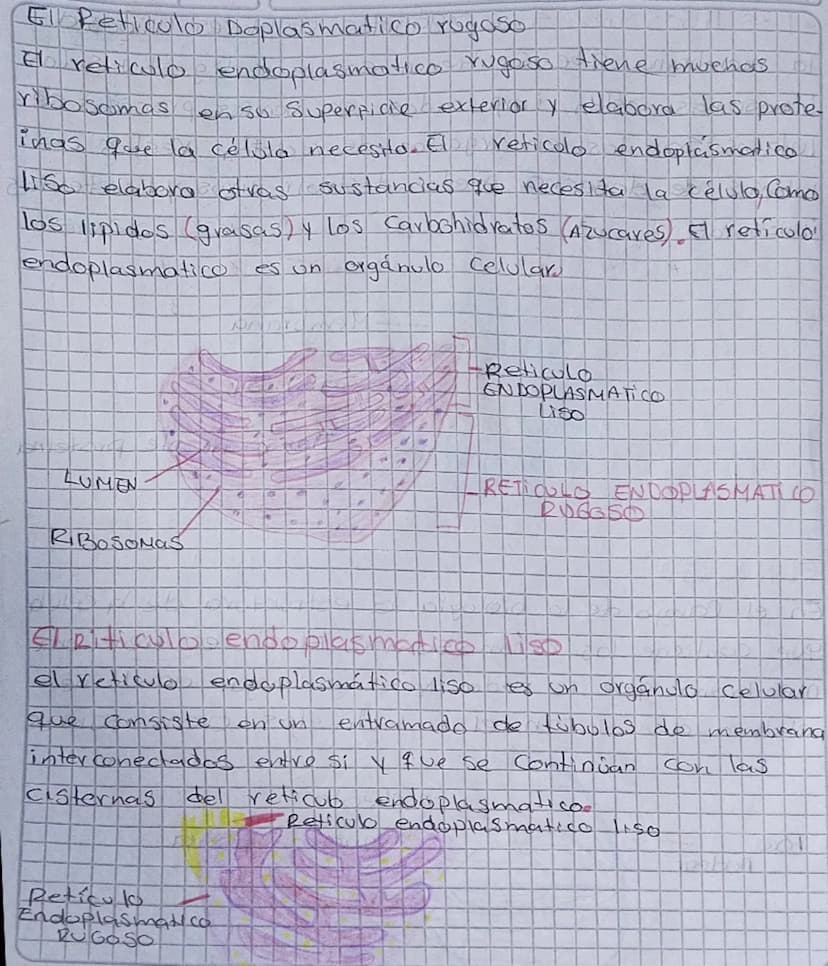 El Reticulo Doplasmatico rugoso
El reticulo endoplasmatico rugoso tiene muchas
ribosomas en su superficie exterior y elabora las prote-
inas que la célula necesita. El reticolo endoplásmatico
Liso elabora otras sustancias que necesita la célula, Como
los lipidos (grasas) y los Carbohidratos (Azucares). El retículo
endoplasmatico es un orgánulo celular
Reticulo
ENDOPLASMATICO
Liso
LUMEN
RETICULO ENDOPLASMATICO
RUGOSO
RiBOSOMAS
El Riticulo endoplasmatico liso
el reticulo endoplasmático liso es un orgánulo celular
que consiste en un entramado de túbulos de membrana
interconectados entre si y que se continúan con las
cisternas del reticulo endoplasmatico.
Reticulo endoplasmatico liso
Retículo
Endoplasmatico
RUGOSO